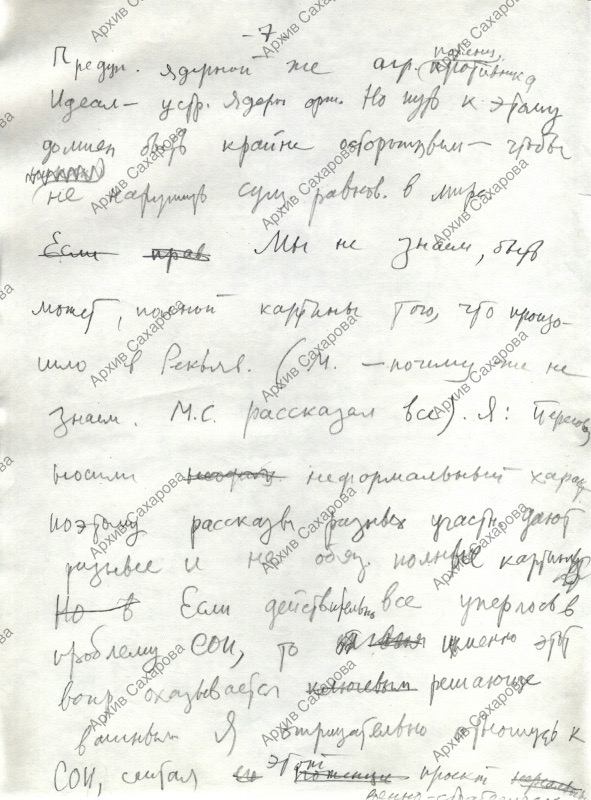 -7-
Предуп. ядерной же агр. потенц. противника
Идеал – устр. ядерн. орж. Но путь к этому
должен быть крайне осторожным – чтобы
не нарушить сущ. равнов. в мире.
Если прав Мы не знаем, быть
может, полной картины того, что произо-
шло в Рекьяв. (М. – почему же не
знаем. М.С. рассказал все). Я: Перегов
носили неформальный харак
поэтому рассказы разных участн. дают
разные и не обяз. полные картины
Но в Если действительно все уперлось в
проблему СОИ, то именно этот
вопр. оказывается ключевым решающе
важным Я отрицательно отношусь к
СОИ, считая этот проект
военно-стратегическ